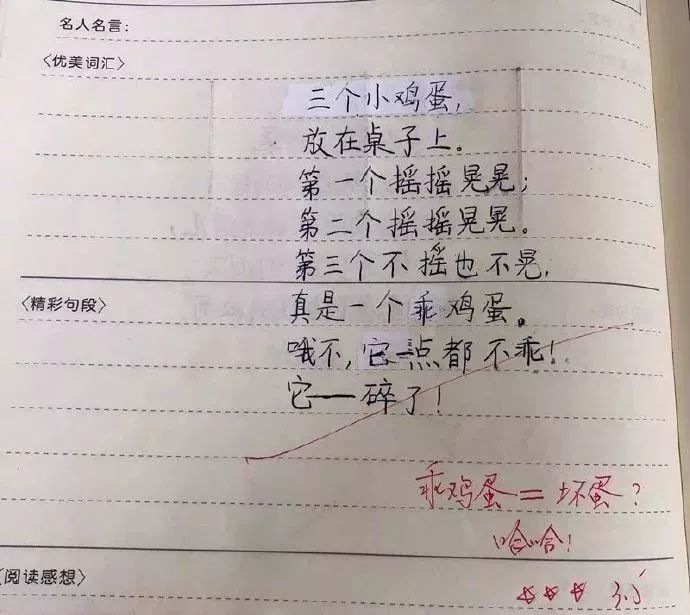 名人名言:
〈优美词汇〉
三个小鸡蛋,
放在桌子上。
第一个摇摇晃晃;
第二个摇摇晃晃。
第三个不摇也不晃,
〈精彩句段〉
真是一个乖鸡蛋。
哦不,它一点都不乖!
它——碎了!
乖鸡蛋=坏蛋?
哈哈!
〈阅读感想〉